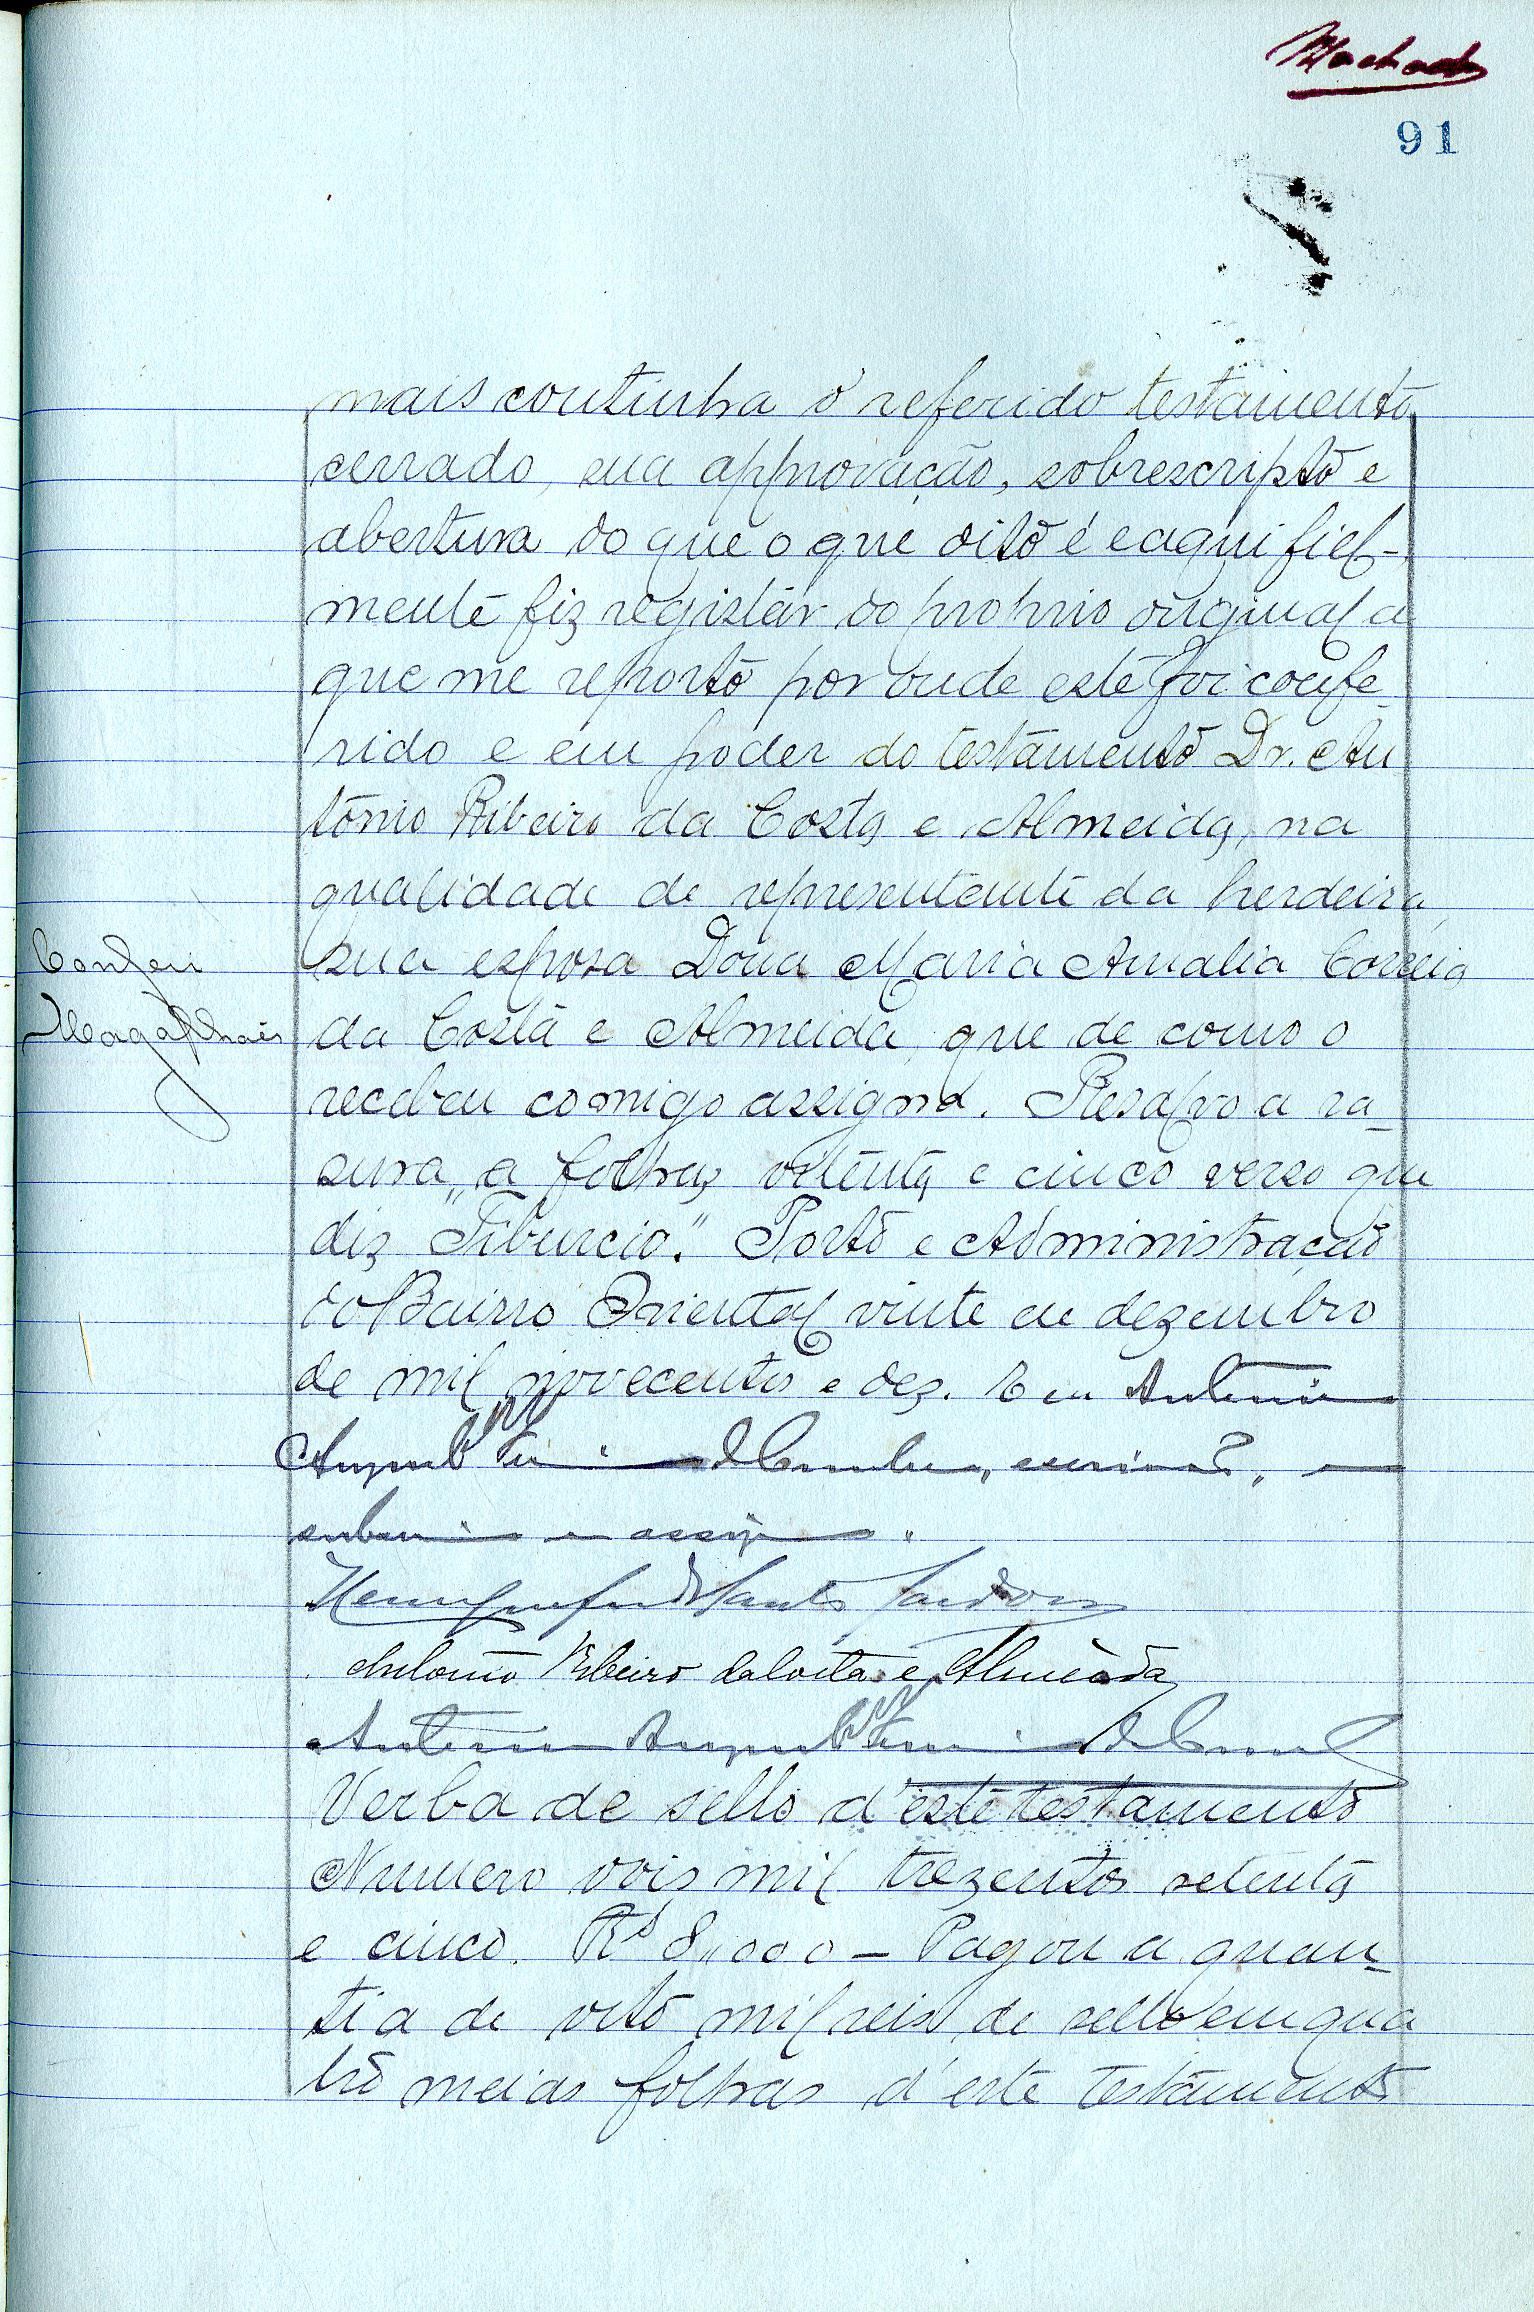 Machado
91
mais continha o referido testamento
cerrado, sua approvação, sobrescripto e
abertura do que o que dito é e aqui fiel-
mente fiz registar do proprio original a
que me reporto por onde este foi confe-
rido e em poder do testamento Dr. An
tonio Ribeiro da Costa e Almeida, na
qualidade de representante da herdeira,
sua esposa Dona Maria Amalia Correia
Conferi
Magalhães
da Costa e Almeida, que de como o
recebeu comigo assigna. Resalvo a ra-
sura, a folhas oitenta e cinco verso que
diz "Tiburcio." Porto e Administração
do Bairro Oriental vinte de dezembro
de mil novecentos e dez. E eu Antonio
Augusto escrivão, o
subscrevi e assigno.
Santos Cardoso
Antonio Ribeiro da Costa e Almeida
Antonio Augusto
Verba de sello d'este testamento
Numero dois mil trezentos setenta
e cinco. Rs 8,,000 – Pagou a quan-
tia de oito mil reis de sello em qua
tro meias folhas d'este testamento